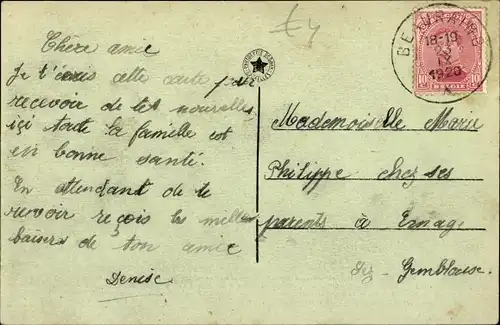 £4
Chère amie
Je t'écris cette carte pour
recevoir de tes nouvelles
içi toute la famille est
en bonne santé.
En attendant de te
revoir reçois les mille
baisers de ton amie
Denise
18-19
1920
10 10
Mademoiselle Marie
Philippe chez ses
parents à Ernage
lez-Gembloux.